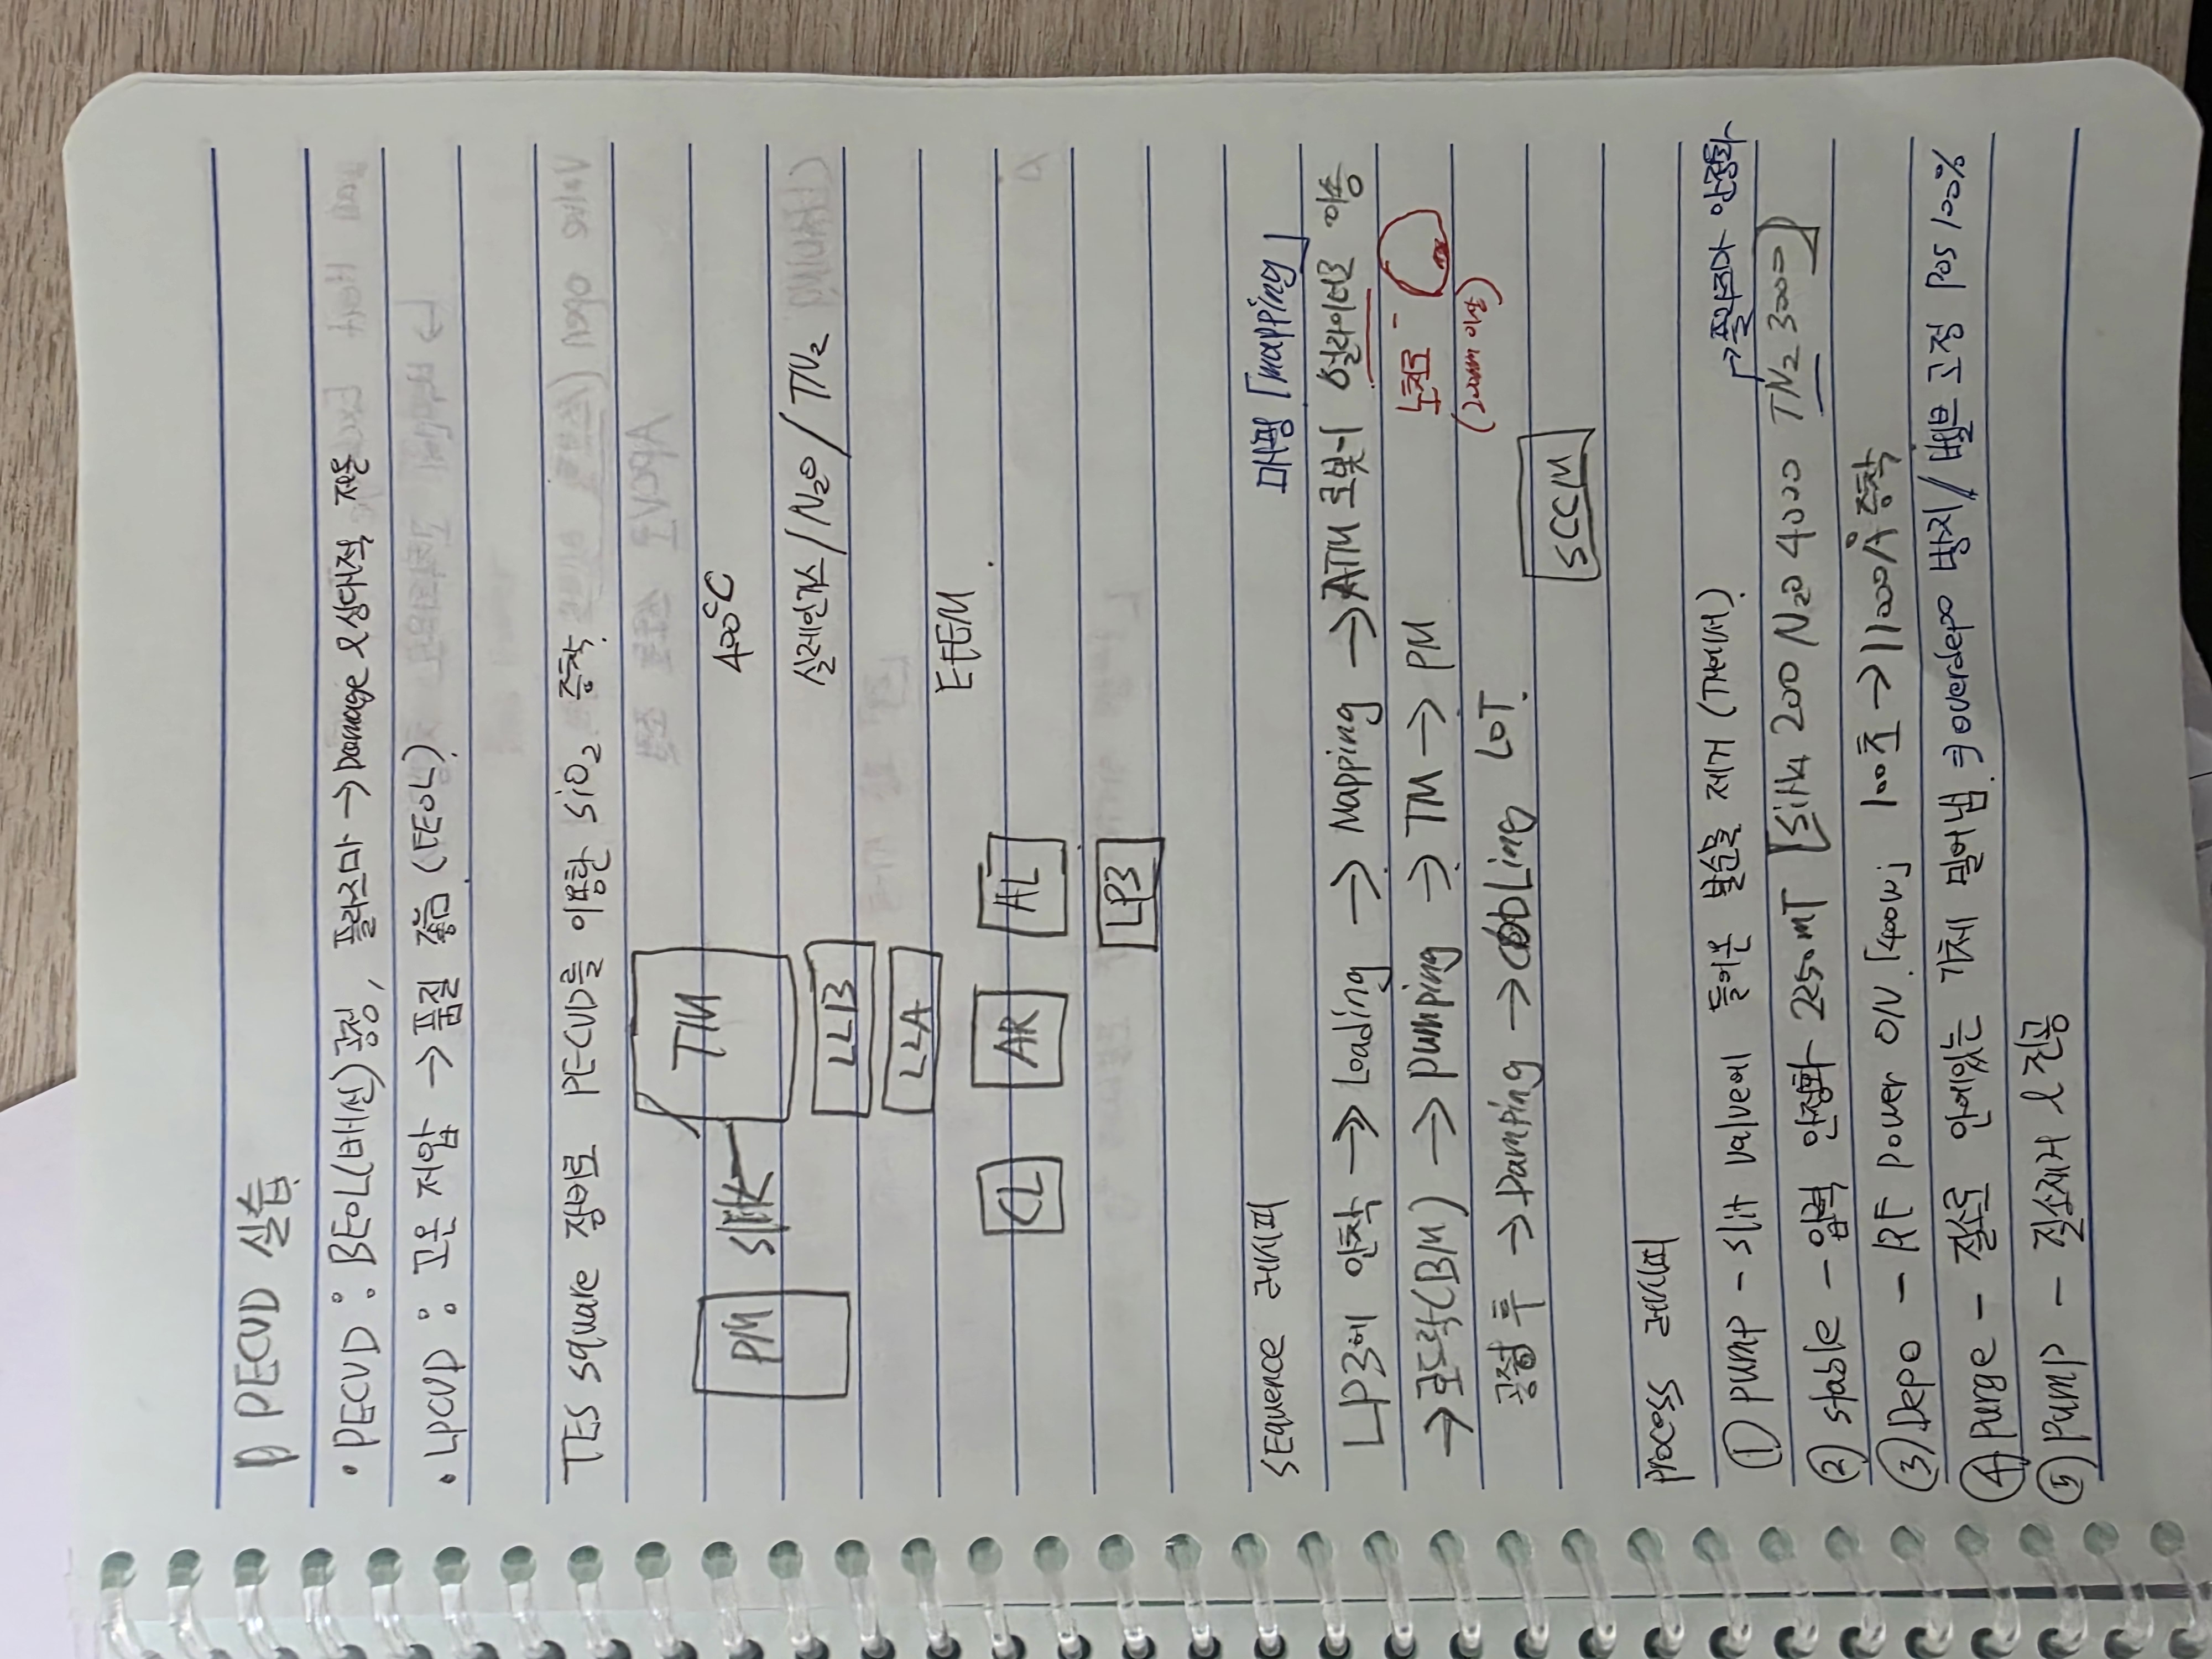 PECVD 실습
• PECVD : BEOL(배선)공정, 플라즈마 → Damage & 상대적 저온
• LPCVD : 고온 저압 → 품질 좋음 (FEOL)
TES square 장비로 PECVD를 이용한 SiO2 증착.
TM
400℃
PM
slit
LLB
실레인가스/N2O/TN2
LLA
EFEM
CL
AR
AL
LP3
Sequence 레시피
매핑 「mapping」
LP3에 안착 → Loading → Mapping → ATM 로봇 얼라이너로 이동
→ 로드락(BM) → pumping → TM → PM
노치로 -
(200mm 이상)
공정 후 → Pamping → cobling LOT.
SCCM
process 레시피
→ 플라즈마 안정화
① PUMP - slit valve에 들어온 불순물 제거 (TM에서)
② stable - 압력 안정화 2250mT [SiH4 200 N2O 4000 TN2 3000]
③ Depo - RF Power ON 「400W」 100초 → 11000Å 증착
④ Purge - 질소로 안에있는 기체 밀어냄 ⇒ overdepo 방지 / 밸브 고정 Pos 100%
⑤ PUMP - 질소제거 & 진공